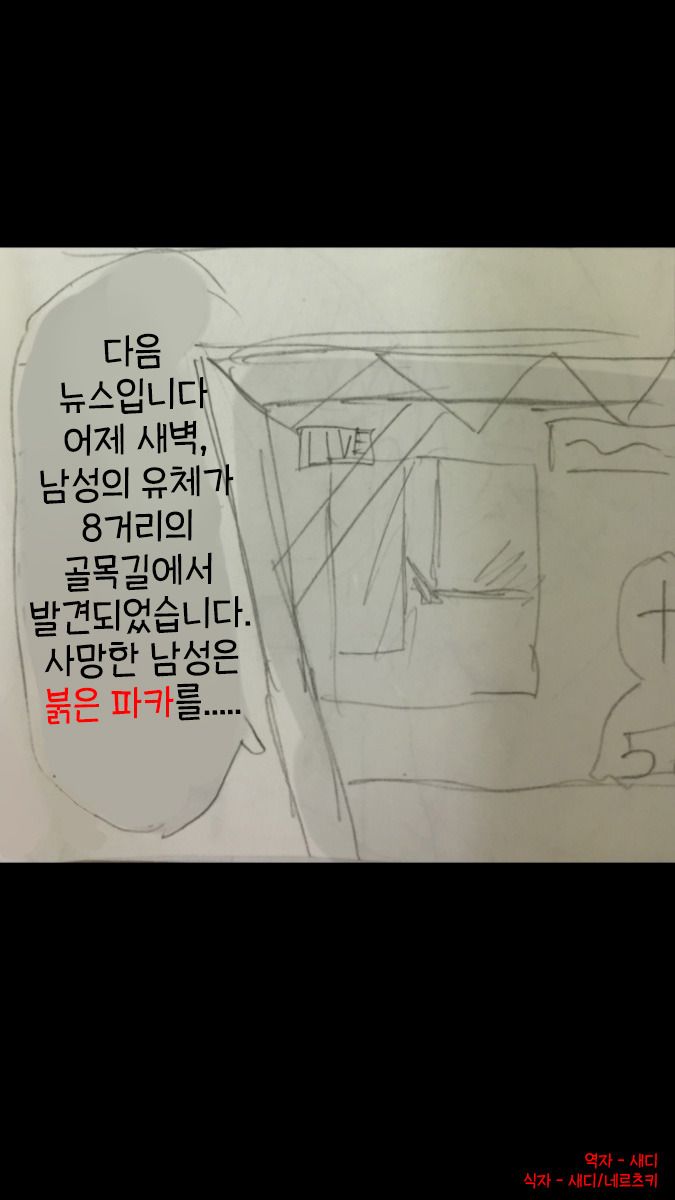 다음
뉴스입니다
어제 새벽,
남성의 유체가
8거리의
골목길에서
발견되었습니다.
사망한 남성은
붉은 파카를.....
LIVE
5
역자 - 새디
식자 - 새디/네르츠키